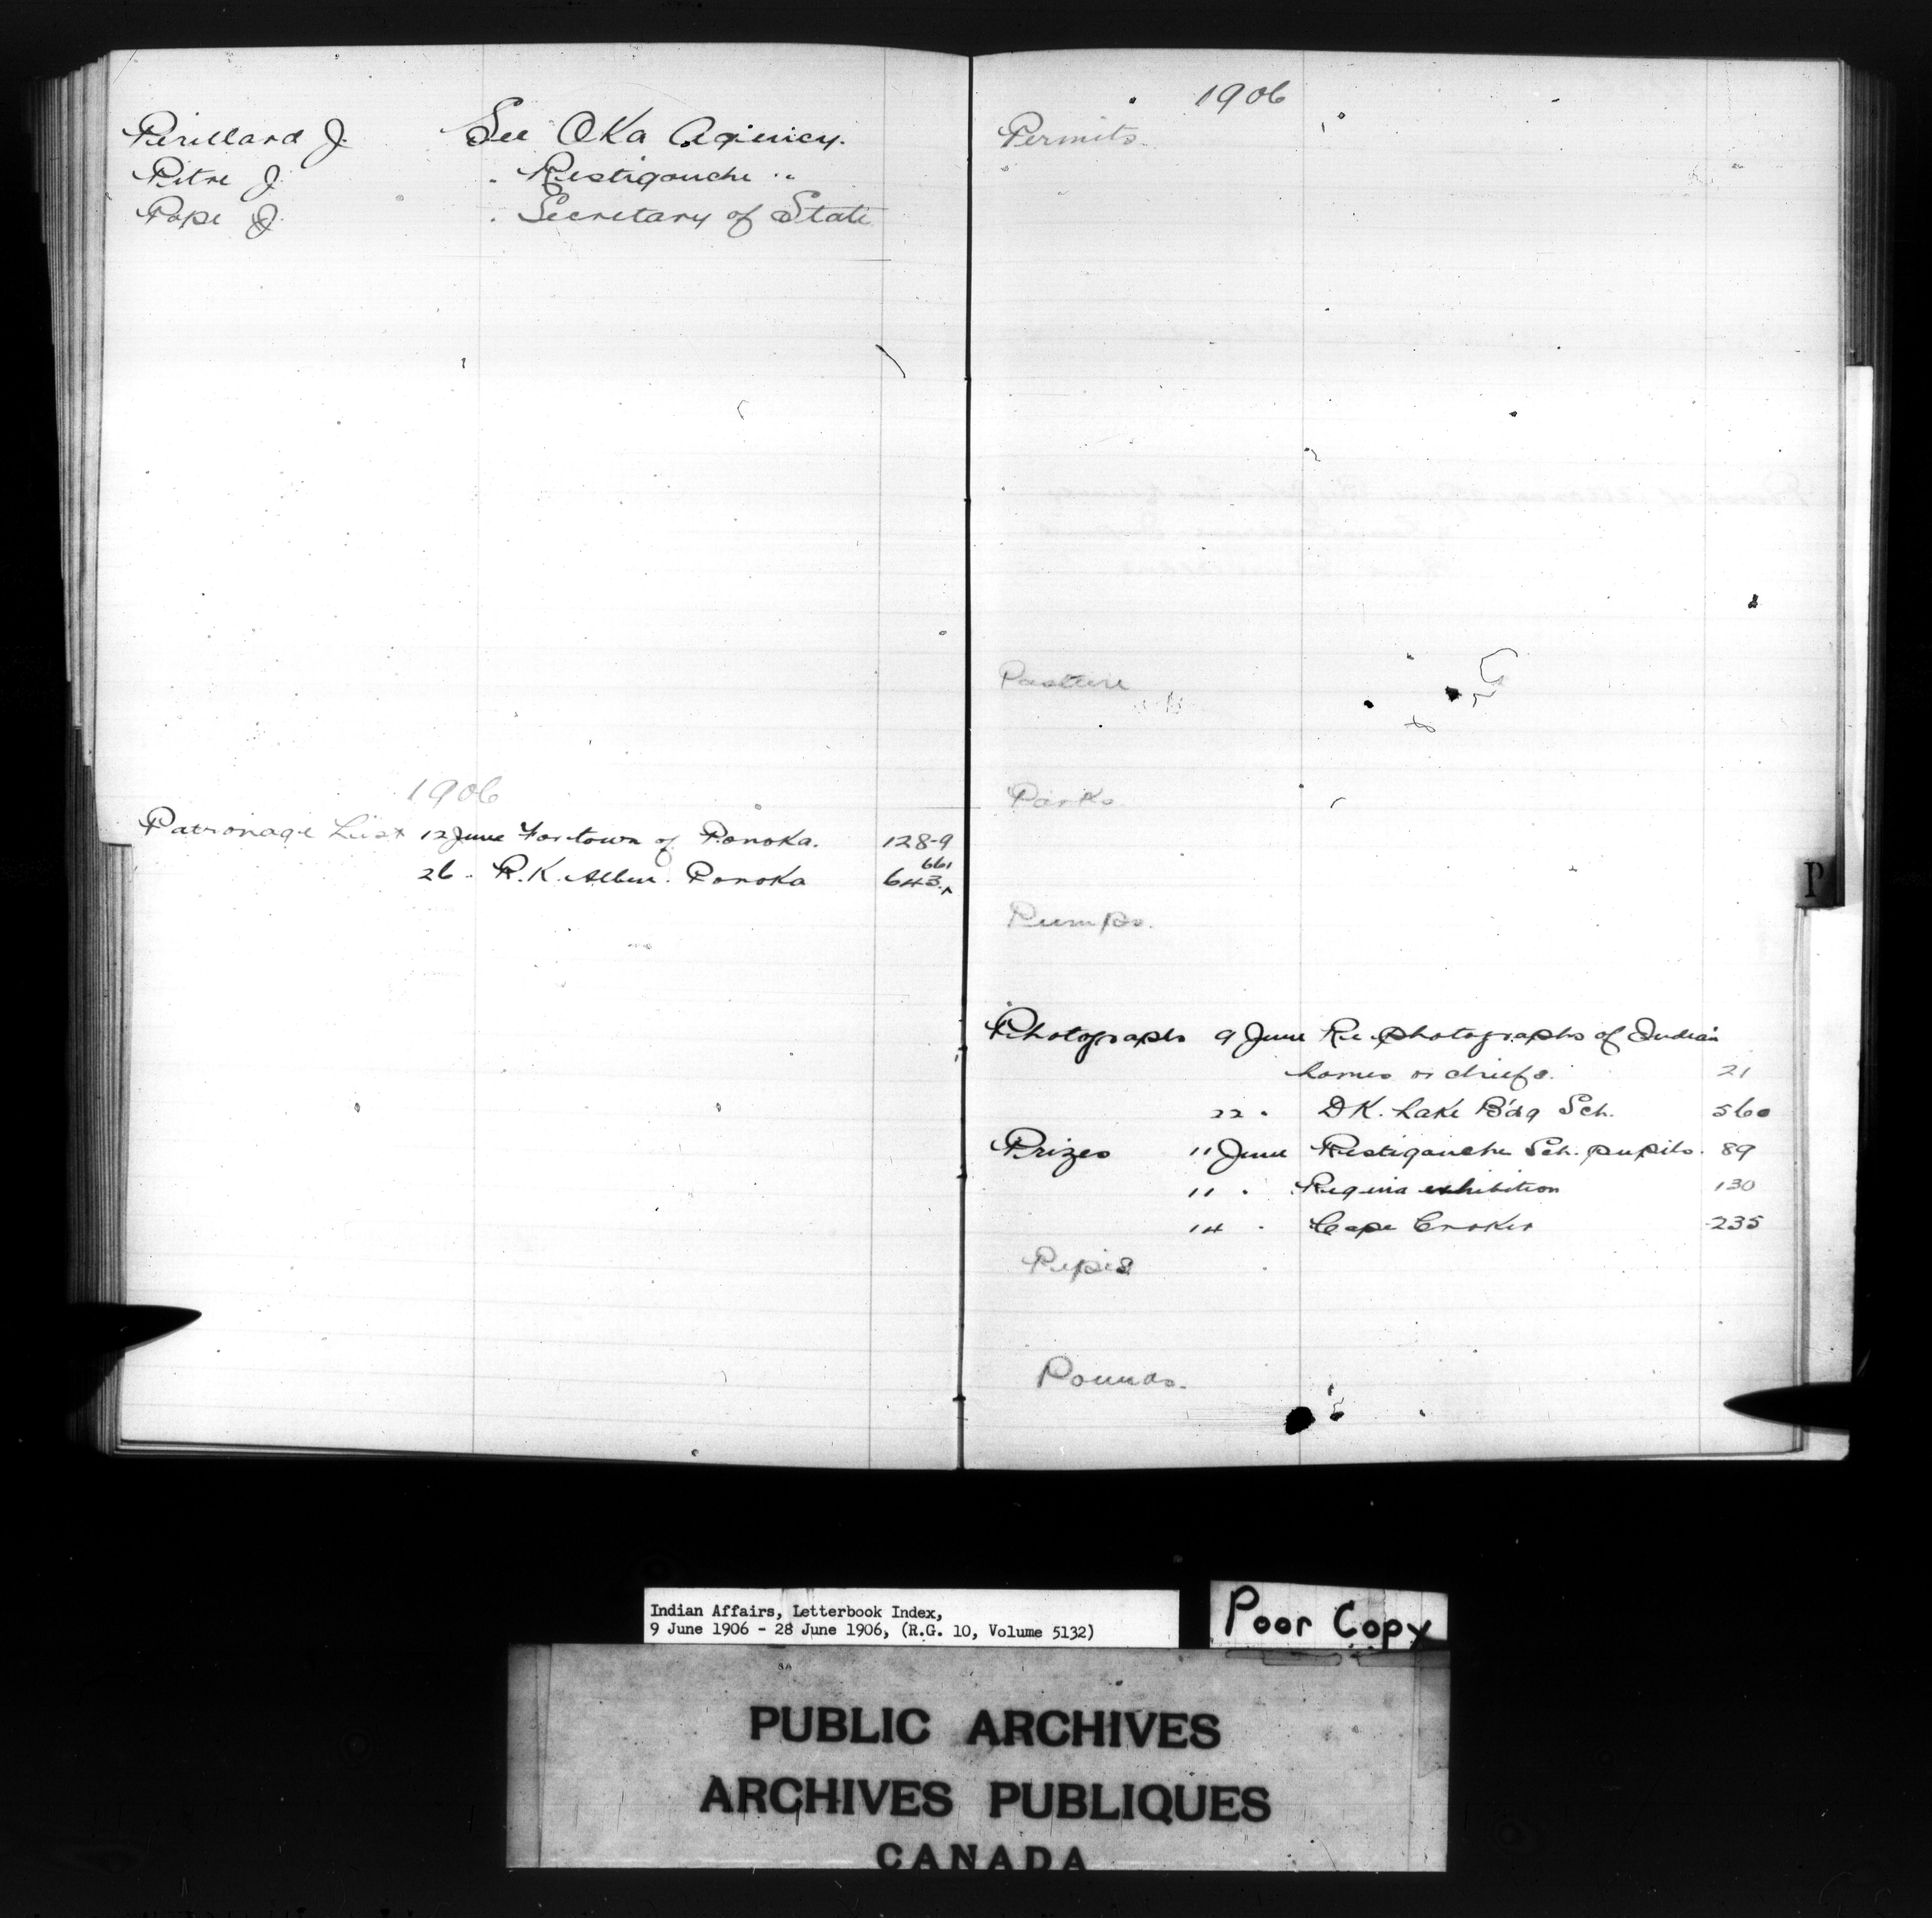 Perillard J. See Oka Agency.
Pitre J. " Restigouche "
Pope J. " Secretary of State
1906
Patronage List 12 June For town of Ponoka. 128-9
26 " R.K. Allen. Ponoka 643, 661
1906
Permits.
Pasture
Parks.
Pumps.
Photographs 9 June Re photographs of Indian
homes or chiefs. 21
22 " DK. Lake B'dg Sch. 560
Prizes 11 June Restigouche Sch. pupils. 89
11 " Regina exhibition 130
14 " Cape Croker 235
Pounds.
P
Indian Affairs, Letterbook Index,
9 June 1906 - 28 June 1906, (R.G. 10, Volume 5132)
Poor Copy
PUBLIC ARCHIVES
ARCHIVES PUBLIQUES
CANADA